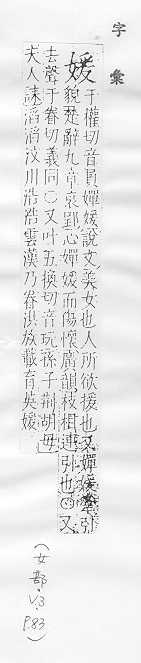 字彙
媛 于權切音員嬋媛說文美女也人所欲援也又嬋媛牽引
貌楚辭九章哀郢心嬋媛而傷懷廣韻枝相連引也〇又
去聲于眷切義同〇又叶五換切音玩孫子荆胡毋
夫人誄滔滔汶川浩浩雲漢乃眷洪族載育英媛
(女部.V.3 P.83)